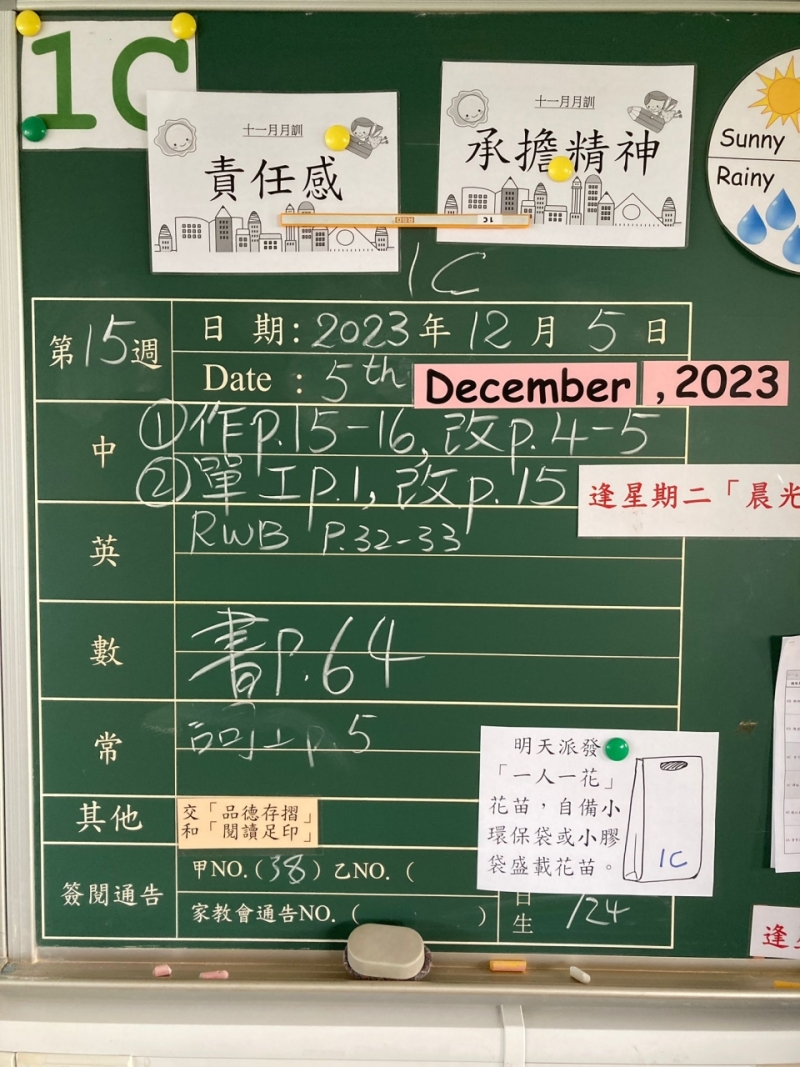 1C
十一月月訓
責任感
十一月月訓
承擔精神
1C
Sunny
Rainy
1C
第15週
日 期: 2023年 12 月 5 日
Date : 5th December , 2023
中
①作p.15-16, 改p.4-5
②單工p.1, 改p.15
逢星期二「晨光
英
RWB P.32-33
數
書P.64
常
詞工p.5
明天派發
「一人一花」
花苗，自備小
環保袋或小膠
袋盛載花苗。
1C
其他
交「品德存摺」
和「閱讀足印」
簽閱通告
甲NO.(38) 乙NO. (
家教會通告NO. ( )
生 /24
逢